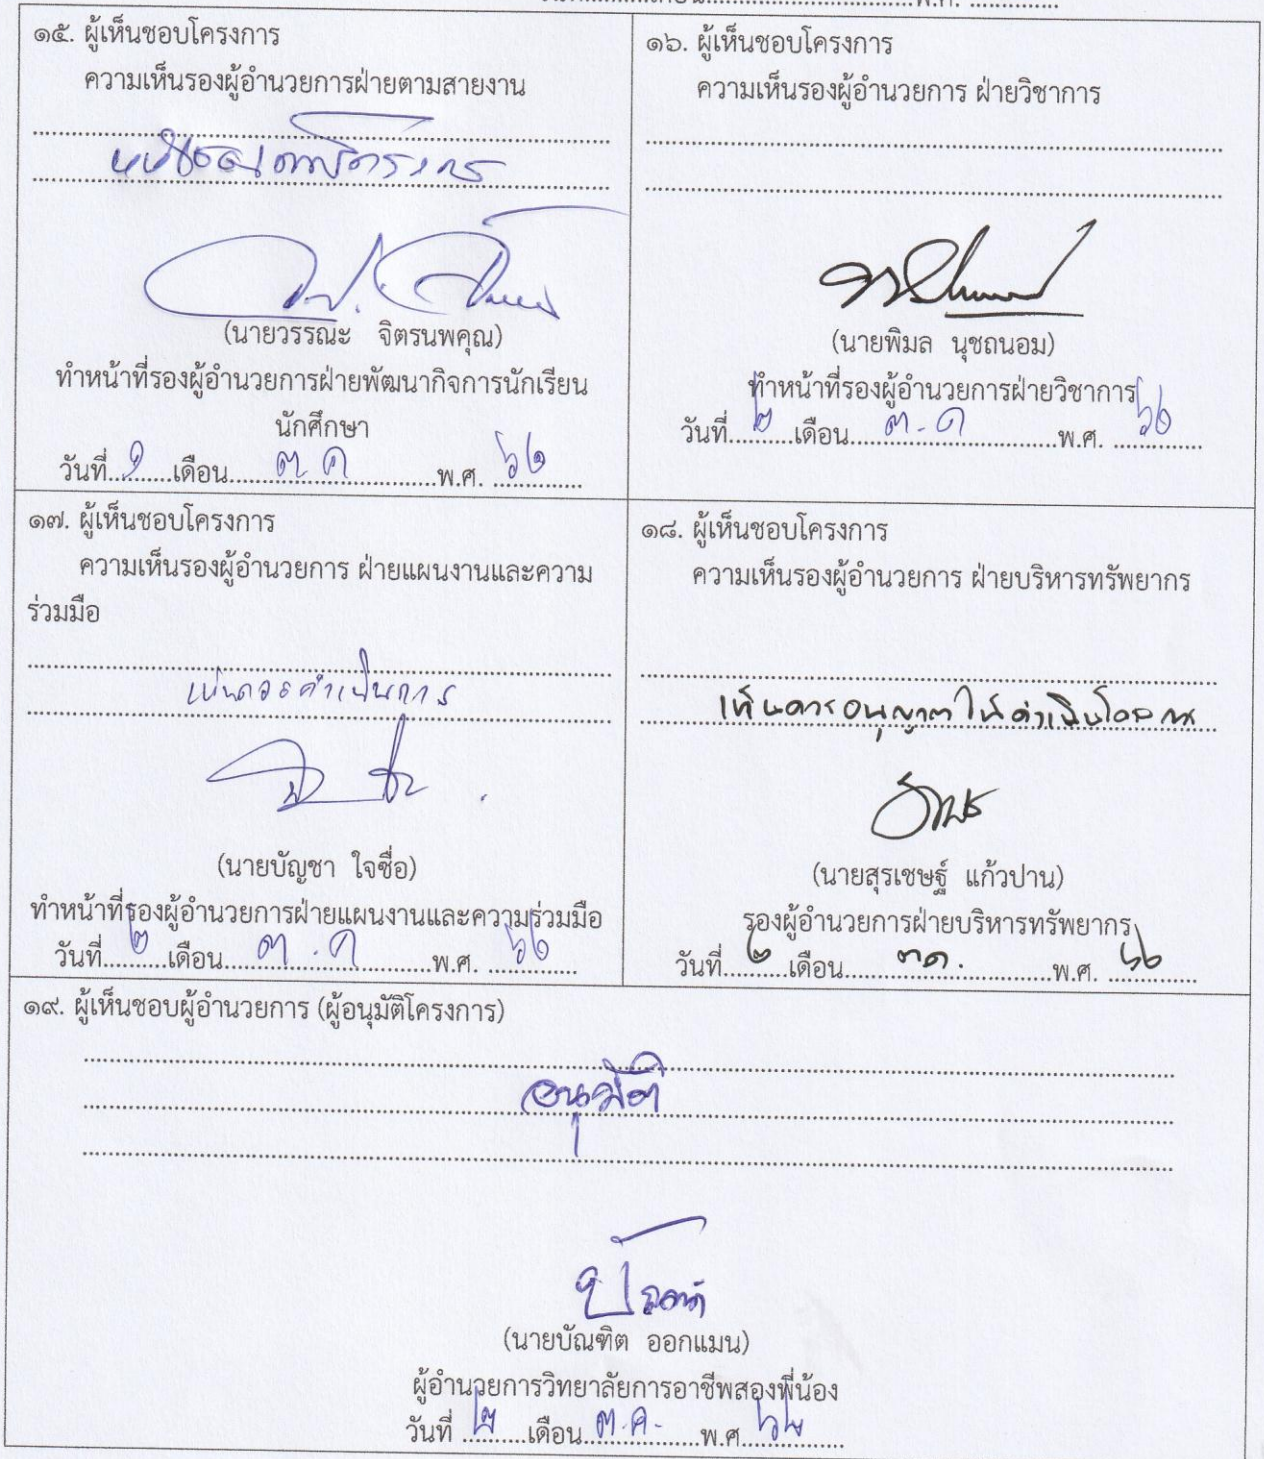 พ.ศ. ..............
๑๕. ผู้เห็นชอบโครงการ
ความเห็นรองผู้อำนวยการฝ่ายตามสายงาน
(นายวรรณะ จิตรนพคุณ)
ทำหน้าที่รองผู้อำนวยการฝ่ายพัฒนากิจการนักเรียน
นักศึกษา
วันที่..........เดือน ต.ค พ.ศ. ..............
๑๖. ผู้เห็นชอบโครงการ
ความเห็นรองผู้อำนวยการ ฝ่ายวิชาการ
(นายพิมล นุชถนอม)
ทำหน้าที่รองผู้อำนวยการฝ่ายวิชาการ
วันที่ ๒ เดือน ต.ค พ.ศ. ..............
๑๗. ผู้เห็นชอบโครงการ
ความเห็นรองผู้อำนวยการ ฝ่ายแผนงานและความ
ร่วมมือ
เห็นควรดำเนินการ
(นายบัญชา ใจซื่อ)
ทำหน้าที่รองผู้อำนวยการฝ่ายแผนงานและความร่วมมือ
วันที่ ๒ เดือน ต.ค พ.ศ. ..............
๑๘. ผู้เห็นชอบโครงการ
ความเห็นรองผู้อำนวยการ ฝ่ายบริหารทรัพยากร
เห็นควรอนุญาตให้ดำเนินโครงการ
(นายสุรเชษฐ์ แก้วปาน)
รองผู้อำนวยการฝ่ายบริหารทรัพยากร
วันที่ ๒ เดือน ต.ค. พ.ศ. ..............
๑๙. ผู้เห็นชอบผู้อำนวยการ (ผู้อนุมัติโครงการ)
อนุมัติ
(นายบัณฑิต ออกแมน)
ผู้อำนวยการวิทยาลัยการอาชีพสองพี่น้อง
วันที่ ๒ เดือน ต.ค. พ.ศ ๖๒